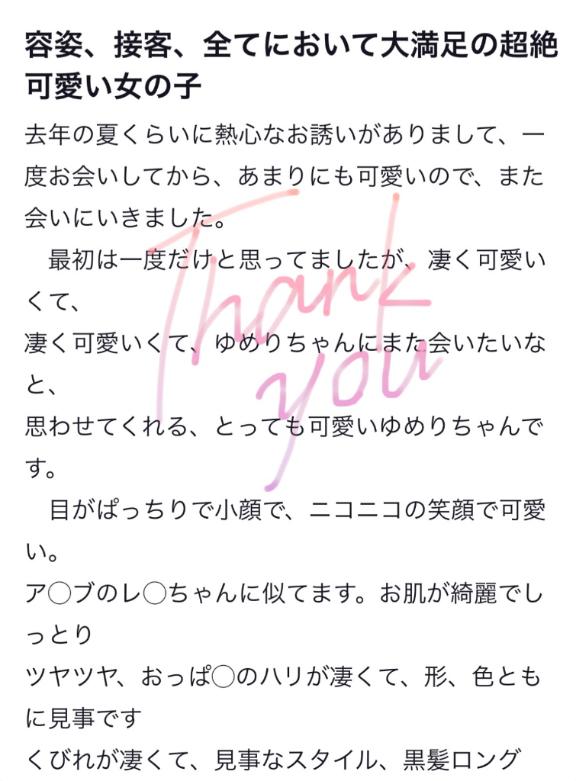 容姿、接客、全てにおいて大満足の超絶
可愛い女の子
去年の夏くらいに熱心なお誘いがありまして、一
度お会いしてから、あまりにも可愛いので、また
会いにいきました。
　最初は一度だけと思ってましたが、凄く可愛い
くて、
凄く可愛いくて、ゆめりちゃんにまた会いたいな
と、
思わせてくれる、とっても可愛いゆめりちゃんで
す。
　目がぱっちりで小顔で、ニコニコの笑顔で可愛
い。
ア◯ブのレ◯ちゃんに似てます。お肌が綺麗でし
っとり
ツヤツヤ、おっぱ◯のハリが凄くて、形、色とも
に見事です
くびれが凄くて、見事なスタイル、黒髪ロング
Thank
you